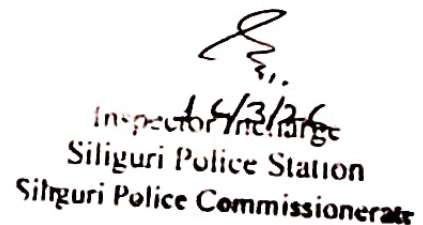 16/3/26
Inspector Incharge
Siliguri Police Station
Siliguri Police Commissionerate